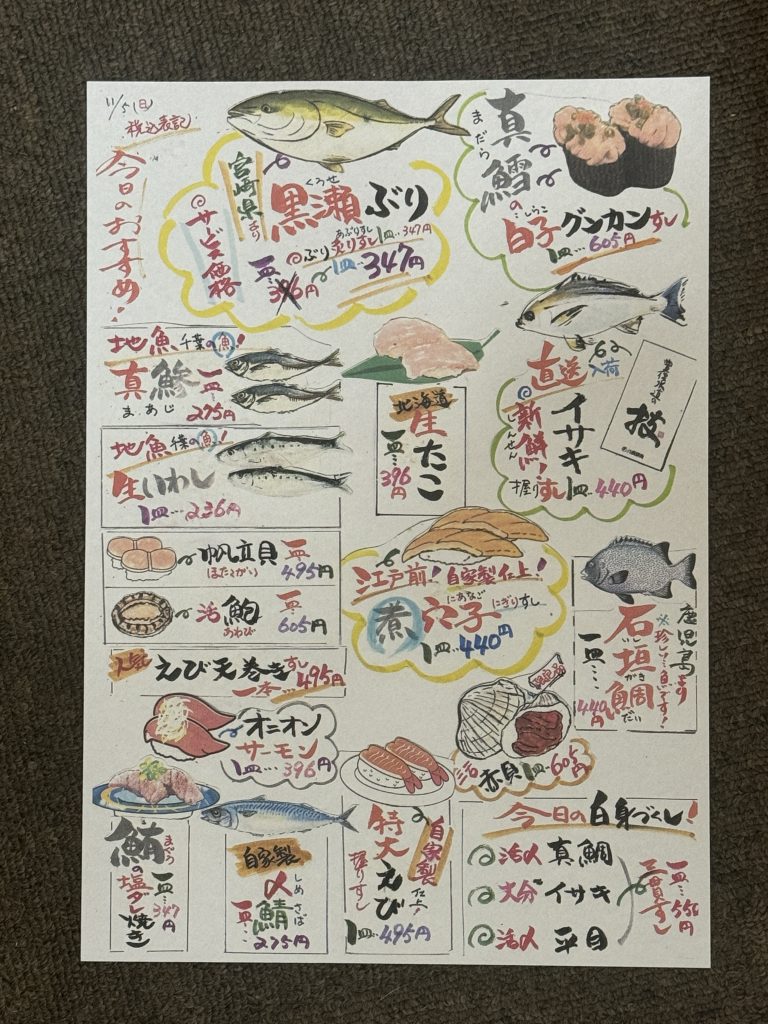 11/5(日)
税込表記
今日のおすすめ!
宮崎県より
くろせ
黒瀬ぶり
サービス価格
あぶりすし 1皿…347円
ぶり炙りすし
一皿…396円 1皿…347円
まだら
真鱈の
しらこ
白子グンカンすし
1皿…605円
地魚 千葉の魚!
真鯵 一皿…275円
まあじ
地魚 千葉の魚!
生いわし
1皿…236円
北海道
生たこ
一皿…396円
直送 入荷
しんせん
新鮮!
イサキ
握りすし 1皿…440円
帆立貝 一皿…495円
ほたてがい
活鮑 一皿…605円
あわび
人気 えび天巻きすし
一本…495円
江戸前!自家製仕上!
にあなご にぎりすし
煮穴子
1皿…440円
鹿児島より
※珍しい…良いです!
石垣鯛
いしがきだい
一皿…440円
オニオン
サーモン
1皿…396円
活赤貝 1皿…605円
まぐろ
鮪の塩ダレ焼き
一皿…347円
自家製
しめさば
〆鯖
一皿…275円
自家製仕上!
特大えび
握りすし
1皿…495円
今日の白身づくし!
活〆 真鯛
大分 イサキ
活〆 平目
三貫すし
一皿…556円